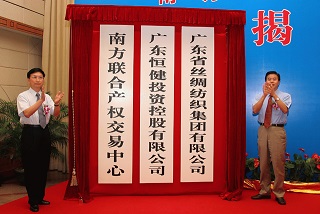 揭
广东省丝绸纺织集团有限公司
广东恒健投资控股有限公司
南方联合产权交易中心